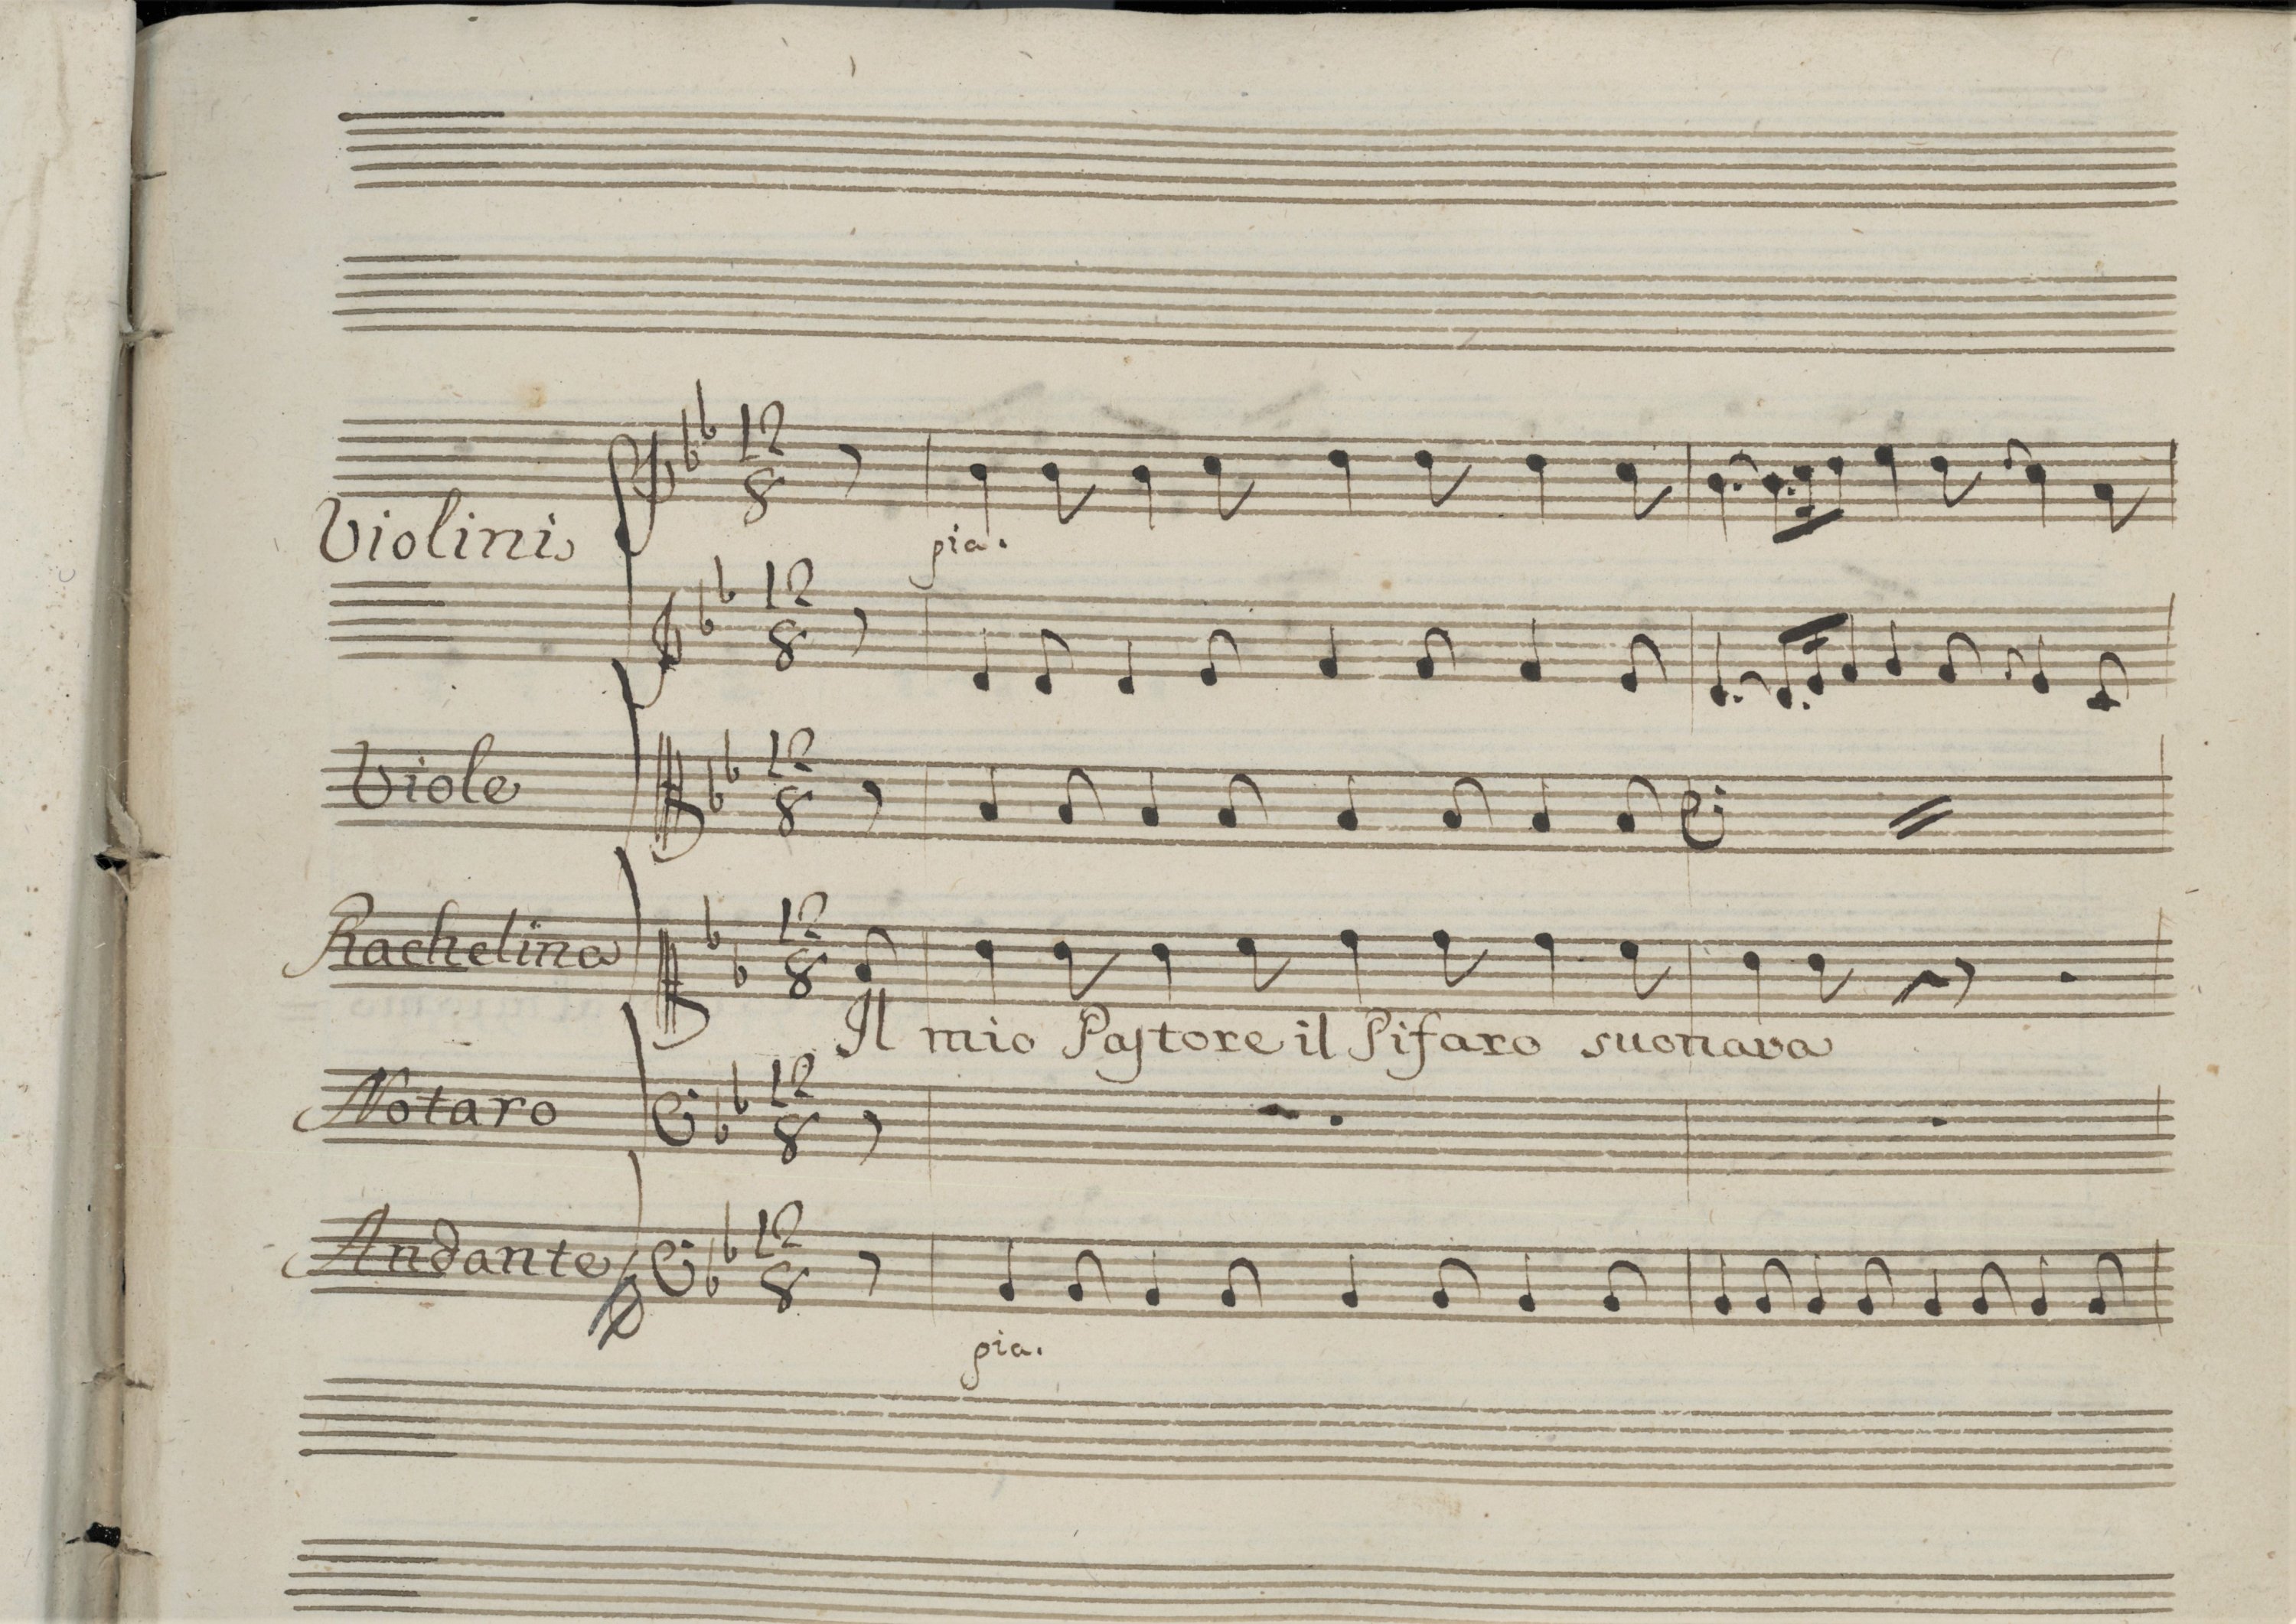 12
8
Violini
pia.
12
8
Viole
12
8
Rachelina
12
8
Il mio Pastore il Pifaro suonava
Notaro
12
8
Andante
12
8
pia.